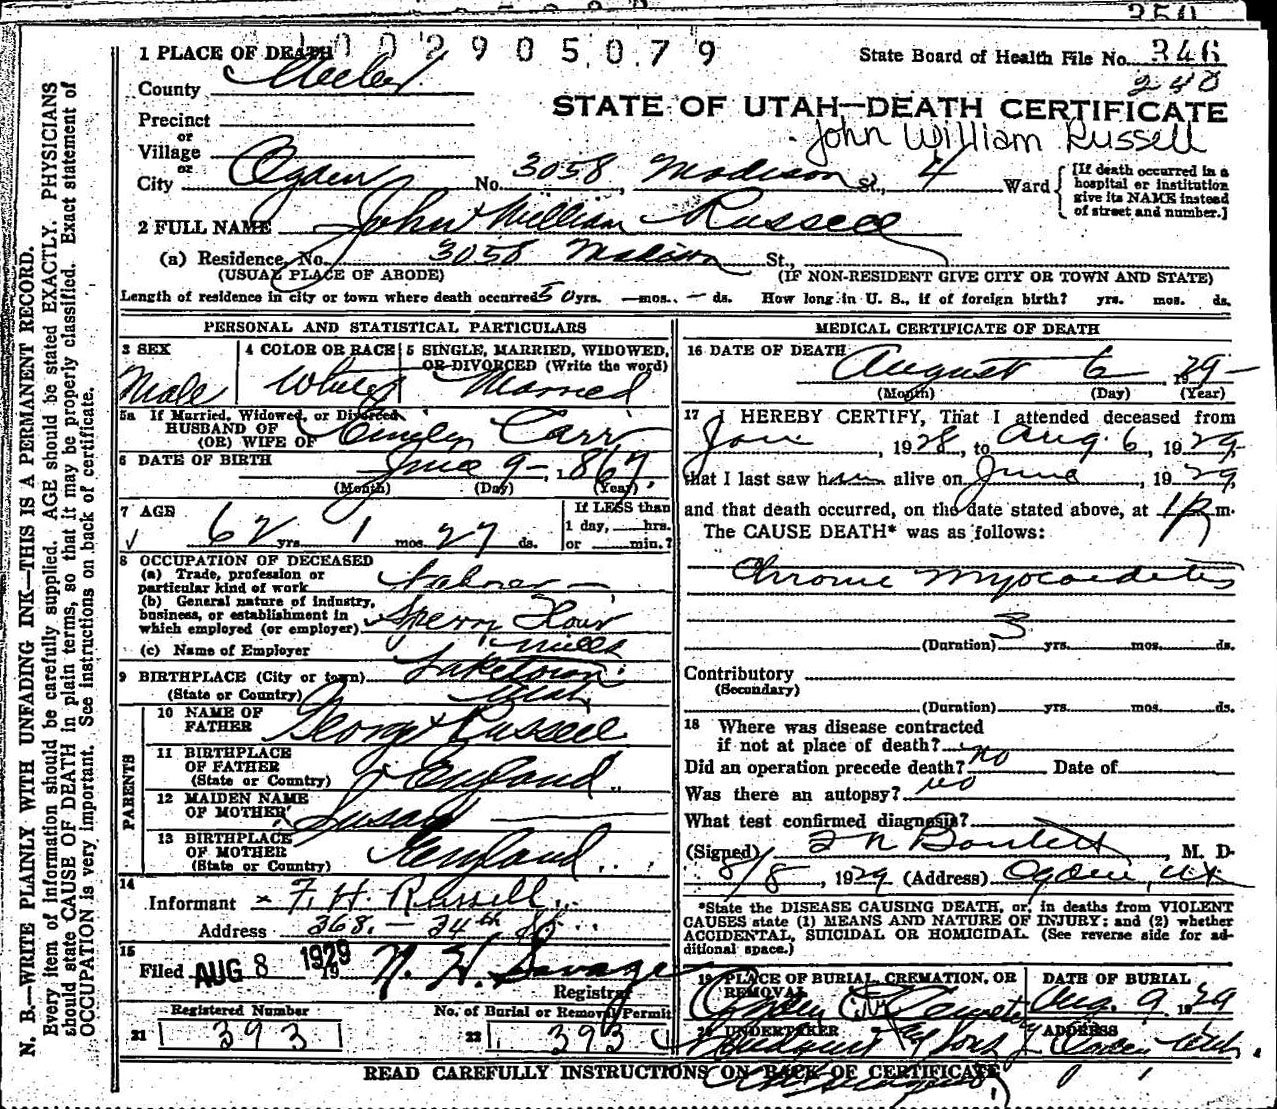 350
1 PLACE OF DEATH
002905079
State Board of Health File No. 346
240
County Weber
STATE OF UTAH—DEATH CERTIFICATE
Precinct
or
John William Russell
Village
or
City Ogden No. 3058 Madison St., 4 Ward
[If death occurred in a hospital or institution give its NAME instead of street and number.]
2 FULL NAME John William Russell
(a) Residence, No. 3058 Madison St.,
(USUAL PLACE OF ABODE) (IF NON-RESIDENT GIVE CITY OR TOWN AND STATE)
Length of residence in city or town where death occurred 50 yrs. — mos. — ds. How long in U. S., if of foreign birth? yrs. mos. ds.
PERSONAL AND STATISTICAL PARTICULARS
3 SEX Male
4 COLOR OR RACE White
5 SINGLE, MARRIED, WIDOWED, OR DIVORCED (Write the word) Married
5a If Married, Widowed, or Divorced
HUSBAND OF
(OR) WIFE OF Emily Carr
6 DATE OF BIRTH June 9 – 1867
(Month) (Day) (Year)
7 AGE 62 yrs. 1 mos. 27 ds.
If LESS than
1 day, hrs.
or min.?
8 OCCUPATION OF DECEASED
(a) Trade, profession or
particular kind of work Laborer –
(b) General nature of industry,
business, or establishment in
which employed (or employer) Sperry Flour
Mills
(c) Name of Employer
9 BIRTHPLACE (City or town) Laketown
(State or Country) Utah
PARENTS
10 NAME OF
FATHER George Russell
11 BIRTHPLACE
OF FATHER
(State or Country) England
12 MAIDEN NAME
OF MOTHER Susan
13 BIRTHPLACE
OF MOTHER
(State or Country) England
14
Informant F. H. Russell
Address 368 – 34th St.
15
Filed AUG 8 1929 19 N. H. Savage
Registrar
Registered Number No. of Burial or Removal Permit
21 393 22 393
MEDICAL CERTIFICATE OF DEATH
16 DATE OF DEATH
August 6, 1929
(Month) (Day) (Year)
17 I HEREBY CERTIFY, That I attended deceased from
Jan, 1928, to Aug. 6, 1929,
that I last saw him alive on June, 1929,
and that death occurred, on the date stated above, at 1 P m.
The CAUSE DEATH* was as follows:
Chronic Myocarditis
(Duration) 3 yrs. mos. ds.
Contributory
(Secondary)
(Duration) yrs. mos. ds.
18 Where was disease contracted
if not at place of death? no
Did an operation precede death? Date of
Was there an autopsy? no
What test confirmed diagnosis?
(Signed) M. D.
8/8, 1929 (Address) Ogden, Ut
*State the DISEASE CAUSING DEATH, or, in deaths from VIOLENT
CAUSES state (1) MEANS AND NATURE OF INJURY: and (2) whether
ACCIDENTAL, SUICIDAL OR HOMICIDAL. (See reverse side for ad-
ditional space.)
19 PLACE OF BURIAL, CREMATION, OR
REMOVAL
Ogden City Cemetery
DATE OF BURIAL
Aug. 9, 1929
20 UNDERTAKER
Lindquist & Sons
ADDRESS
Ogden Utah.
READ CAREFULLY INSTRUCTIONS ON BACK OF CERTIFICATE
N. B.—WRITE PLAINLY WITH UNFADING INK—THIS IS A PERMANENT RECORD.
Every item of information should be carefully supplied. AGE should be stated EXACTLY. PHYSICIANS
should state CAUSE OF DEATH in plain terms, so that it may be properly classified. Exact statement of
OCCUPATION is very important. See instructions on back of certificate.